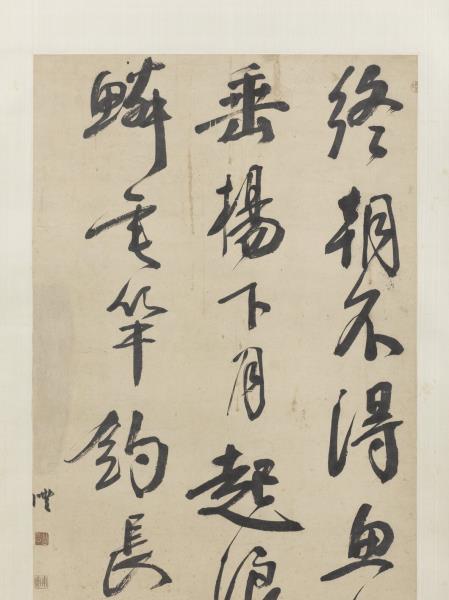 終朝不得魚
垂楊下月起浪
鱗竿釣長